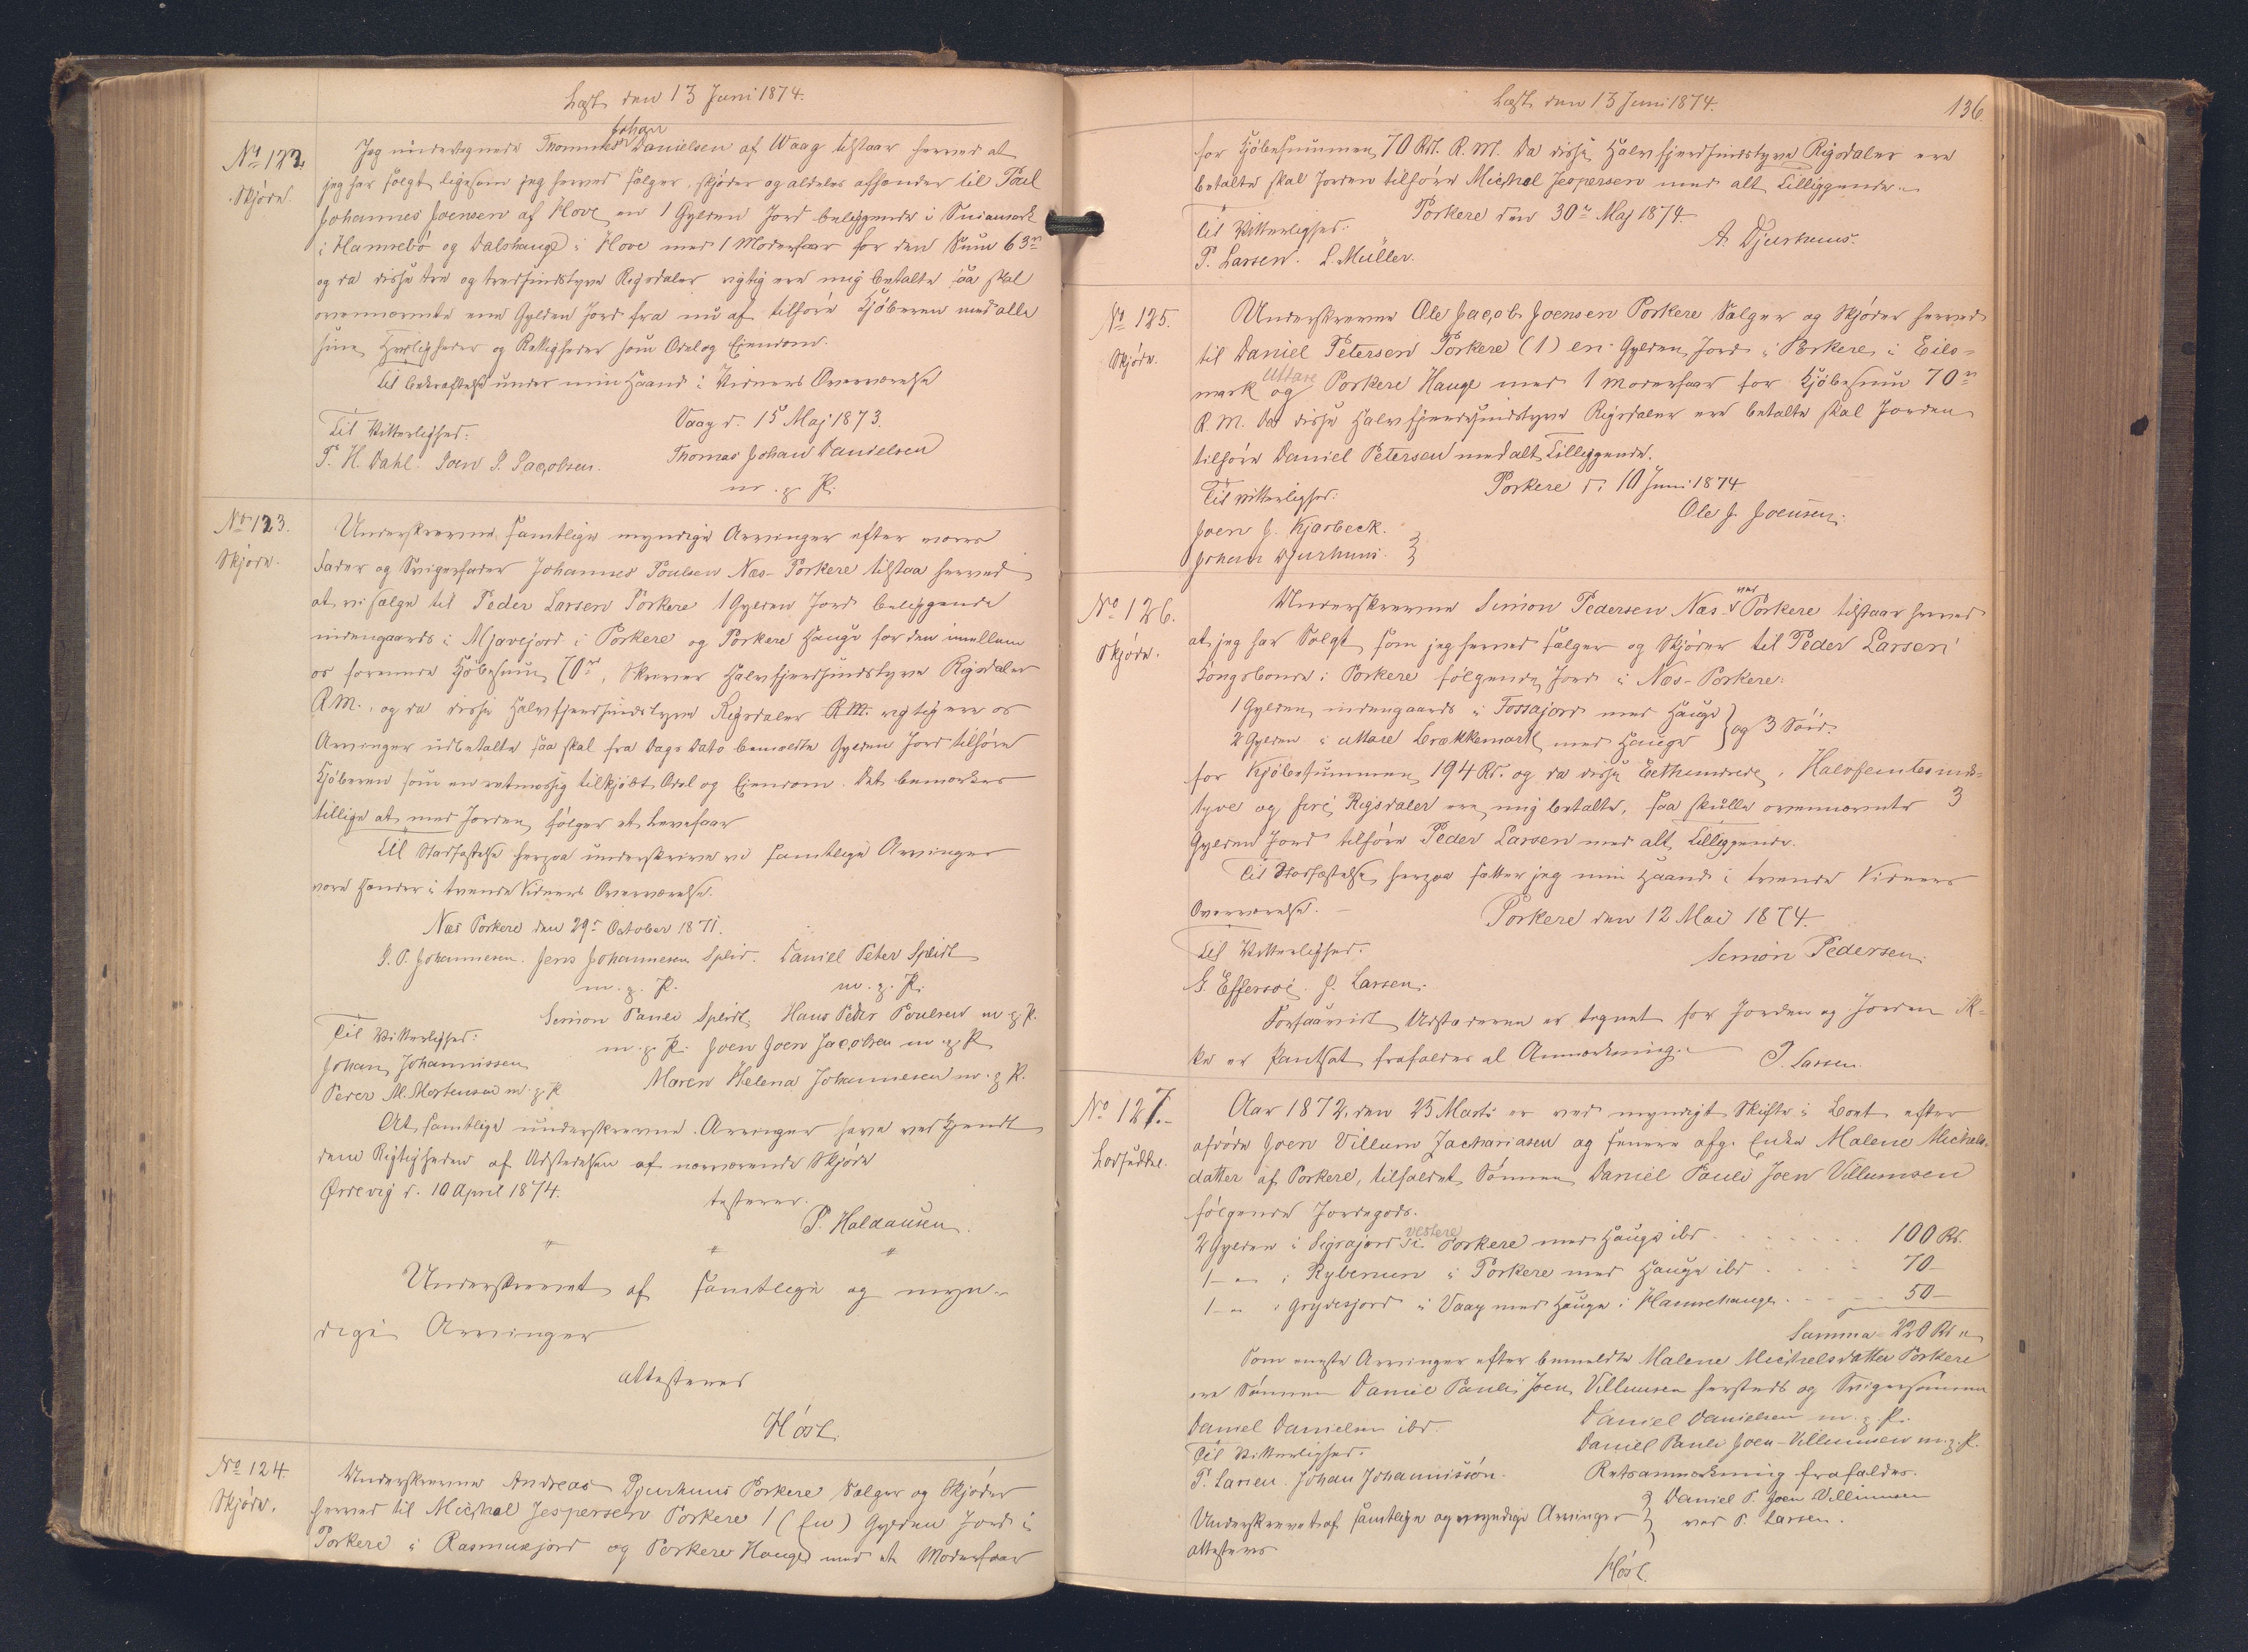 Læst den 13 Juni 1874.
No 122.
Skjöde.
Jeg undertegnede Thomas Johan Danielsen af Waag tilstaar herved at
jeg har solgt ligesom jeg herved sælger, skjøder og aldeles afhænder til Poul
Johannes Joensen af Hove en 1 Gylden Jord beliggende i Suïamark
i Hamrebö og Dalshauge i Hove med 1 Moderfaar for den Sum 63 rd
og da disse tre og tredsindstyve Rigsdaler rigtig ere mig betalte saa skal
ovennævnte ene Gylden Jord fra nu af tilhöre Kjöberen med alle
sine Herligheder og Rettigheder som Odel og Ejendom.
Til Bekræftelse under min Haand i Vidners Overværelse
Vaag d. 15 Maj 1873.
Til Vitterlighed:
Thomas Johan Danielsen
P. H. Dahl. Joen P. Jacobsen.
m. p. P.
No 123.
Skjöde.
Underskrevne samtlige myndige Arvinger efter vores
Fader og Svigerfader Johannes Poulsen Næs-Porkere tilstaa herved
at vi sælge til Peder Larsen Porkere 1 Gylden Jord beliggende
indengaards i Mjavejord i Porkere og Porkere Hauge for den imellem
os forenede Kjöbesum 70 rd, skriver Halvfjerdsindstyve Rigsdaler
R.M., og da disse Halvfjerdsindstyve Rigsdaler R.M. rigtig ere os
Arvinger udbetalte saa skal fra Dags Dato bemeldte Gylden Jord tilhöre
Kjöberen som en retmæssig tilkjöbt Odel og Ejendom. Det bemærkes
tillige at med Jorden følger et Levefaar
Til Stadfæstelse herpaa underskrive vi samtlige Arvinger
vore Hænder i tvende Vidners Overværelse.
Næs Porkere den 29de October 1871.
J. P. Johannesen. Jens Johannesen Splid. Daniel Peter Splidt
m. p. P. m. p. P.
Simon Pauli Splidt Hans Peder Poulsen m p P.
Til Vitterlighed:
m. p. P. Joen Joen Jacobsen m. p. P
Johan Johannissen
Maren Helena Johannesen m. p P.
Peder M. Mortensen m. p. P
At samtlige underskrevne Arvinger have vedkjendt
dem Rigtigheden af Udstedelsen af nærværende Skjöde
Ørdevig d. 10 April 1874. testerer.
P. Haldansen.
Underskrevet af samtlige og myn-
dige Arvinger
attesteres
Höst.
No 124.
Skjöde.
Underskrevne Andreas Djurhuus Porkere Sælger og Skjöder
herved til Michal Jespersen Porkere 1 (En) Gylden Jord i
Porkere i Rasmusjord og Porkere Hauge med et Moderfaar
Læst den 13 Juni 1874.
136.
for Kjöbesummen 70 Rd. R. M. Da disse Halvfjerdsindstyve Rigsdaler ere
betalte skal Jorden tilhöre Michal Jespersen med alt Tilliggende.
Porkere den 30te Maj 1874
Til Vitterlighed:
A. Djurhuus.
P. Larsen. L. Müller.
No 125.
Skjöde.
Underskrevne Ole Jacob Joensen Porkere Sælger og Skjöder herved
til Daniel Petersen Porkere (1) en Gylden Jord i Porkere i Eils-
mark og uttare Porkere Hauge med 1 moderfaar for Kjöbesum 70 rd
R. M. Da disse Halvfjerdsindstyve Rigsdaler ere betalte skal Jorden
tilhöre Daniel Petersen med alt Tilliggende.
Porkere d. 10 Juni 1874
Til Vitterlighed:
Ole J. Joensen.
Joen J. Kjærbeck.
Johan Djurhuus.
No 126.
Skjöde.
Underskrevne Simon Pedersen Næs ved Porkere tilstaar herved
at jeg har Solgt som jeg herved sælger og Skjöder til Peder Larsen
Kongsbonde i Porkere følgende Jord i Næs-Porkere:
1 Gylden indengaards i Fossajord med Hauge
2 Gylden i uttare Brækkemark med Hauge } og 3 Söid.
for Kjöbesummen 194 Rd. og da disse Eethundrede, Halvfemtesinds-
tyve og fire Rigsdaler ere mig betalte, saa skulle ovennævnte 3
Gylden Jord tilhöre Peder Larsen med alt Tilliggende.
Til Stadfæstelse herpaa sætter jeg min Haand i tvende Vidners
Overværelse.
Porkere den 12 Mai 1874.
Til Vitterlighed.
Simon Pedersen.
G. Effersøe. J. Larsen.
Forsaavidt Udstederen er tegnet for Jorden og Jorden ik-
ke er pantsat frafaldes al Anmærkning.
P. Larsen.
No 127.
Lodseddel.
Aar 1872, den 25 Marts er ved myndigt Skifte i Boet efter
afdöde Joen Villum Zachariasen og senere afg. Enke Malene Michels-
datter af Porkere, tilfaldet Sönnen Daniel Pauli Joen Villumsen
følgende Jordegods.
2 Gylden i Sigrajord i vestere Porkere med Hauge ibd. 100 Rd.
1 - " - i Rybenum i Porkere med Hauge ibd 70 -
1 - " - i Grydesjord i Vaag med Hauge i Hamrehauge 50 -
Samma 220 Rd
Som eneste Arvinger efter bemeldte Malene Michelsdatter Porkere
ere Sönnen Daniel Pauli Joen Villumsen hersteds og Svigersönnen
Daniel Danielsen ibd.
Daniel Danielsen m. p. P.
Til Vitterlighed.
Daniel Pauli Joen Villumsen m. p. P.
P. Larsen. Johan Johannissön.
Retsanmærkning frafaldes.
Daniel P. Joen Villumsen
Underskrevet af samtlige og myndige Arvinger
ved P. Larsen.
attesteres
Höst.